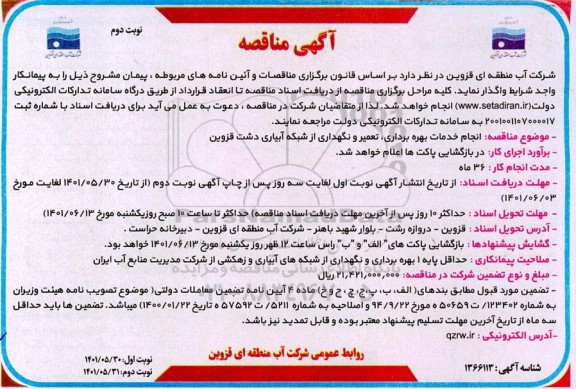 نوبت دوم
آگهی مناقصه
شرکت آب منطقه ای قزوین در نظر دارد بر اساس قانون برگزاری مناقصات و آئین نامه های مربوطه ، پیمان مشروح ذیل را به پیمانکار
واجد شرایط واگذار نماید. کلیه مراحل برگزاری مناقصه از دریافت اسناد مناقصه تا انعقاد قرارداد از طریق درگاه سامانه تدارکات الکترونیکی
دولت(www.setadiran.ir) انجام خواهد شد. لذا از متقاضیان شرکت در مناقصه ، دعوت به عمل می آید برای دریافت اسناد با شماره ثبت
۲۰۰۱۰۰۱۱۰۷۰۰۰۰۱۷ به سامانه تدارکات الکترونیکی دولت مراجعه نمایند.
- موضوع مناقصه: انجام خدمات بهره برداری، تعمیر و نگهداری از شبکه آبیاری دشت قزوین
- برآورد اجرای کار: در بازگشایی پاکت ها اعلام خواهد شد.
- مدت انجام کار : ۳۶ ماه
- مهلت دریافت اسناد: از تاریخ انتشار آگهی نوبت اول لغایت سه روز پس از چاپ آگهی نوبت دوم (از تاریخ ۱۴۰۱/۰۵/۳۰ لغایت مورخ
۱۴۰۱/۰۶/۰۳)
- مهلت تحویل اسناد : حداکثر ۱۰ روز پس از آخرین مهلت دریافت اسناد مناقصه) حداکثر تا ساعت ۱۰ صبح روزیکشنبه مورخ ۱۴۰۱/۰۶/۱۳)
- آدرس تحویل اسناد : قزوین - دروازه رشت - بلوار شهید باهنر - شرکت آب منطقه ای قزوین - دبیرخانه حراست .
- گشایش پیشنهادها : بازگشایی پاکت های" الف" و "ب" راس ساعت ۱۲ ظهر روز یکشنبه مورخ ۱۴۰۱/۰۶/۱۳ خواهد بود.
- صلاحیت پیمانکاری : حداقل پایه ۱ بهره برداری و نگهداری از شبکه های آبیاری و زهکشی از شرکت مدیریت منابع آب ایران
- مبلغ و نوع تضمین شرکت در مناقصه: ۲۱,۴۲۱,۰۰۰,۰۰۰ ریال
- تضمین مورد قبول مطابق بندهای(الف، ب، پ، ج، چ، ح و خ) ماده ۴ آئین نامه تضمین معاملات دولتی( موضوع تصویب نامه هیئت وزیران
به شماره ۱۲۳۴۰۲/ت ۵۰۶۵۹ ه مورخ ۹۴/۹/۲۲ و اصلاحیه به شماره ۵۲۱۱/ ت ۵۷۵۹۲ ه تاریخ ۱۴۰۰/۰۱/۲۲) میباشد. تضمین ها باید حداقل
سه ماه از تاریخ آخرین مهلت تسلیم پیشنهاد معتبر بوده و قابل تمدید نیز باشد.
-آدرس الکترونیکی : qzrw.ir
روابط عمومی شرکت آب منطقه ای قزوین
نوبت اول: ۱۴۰۱/۰۵/۳۰
نوبت دوم: ۱۴۰۱/۰۵/۳۱
شناسه آگهی : ۱۳۶۶۱۱۳